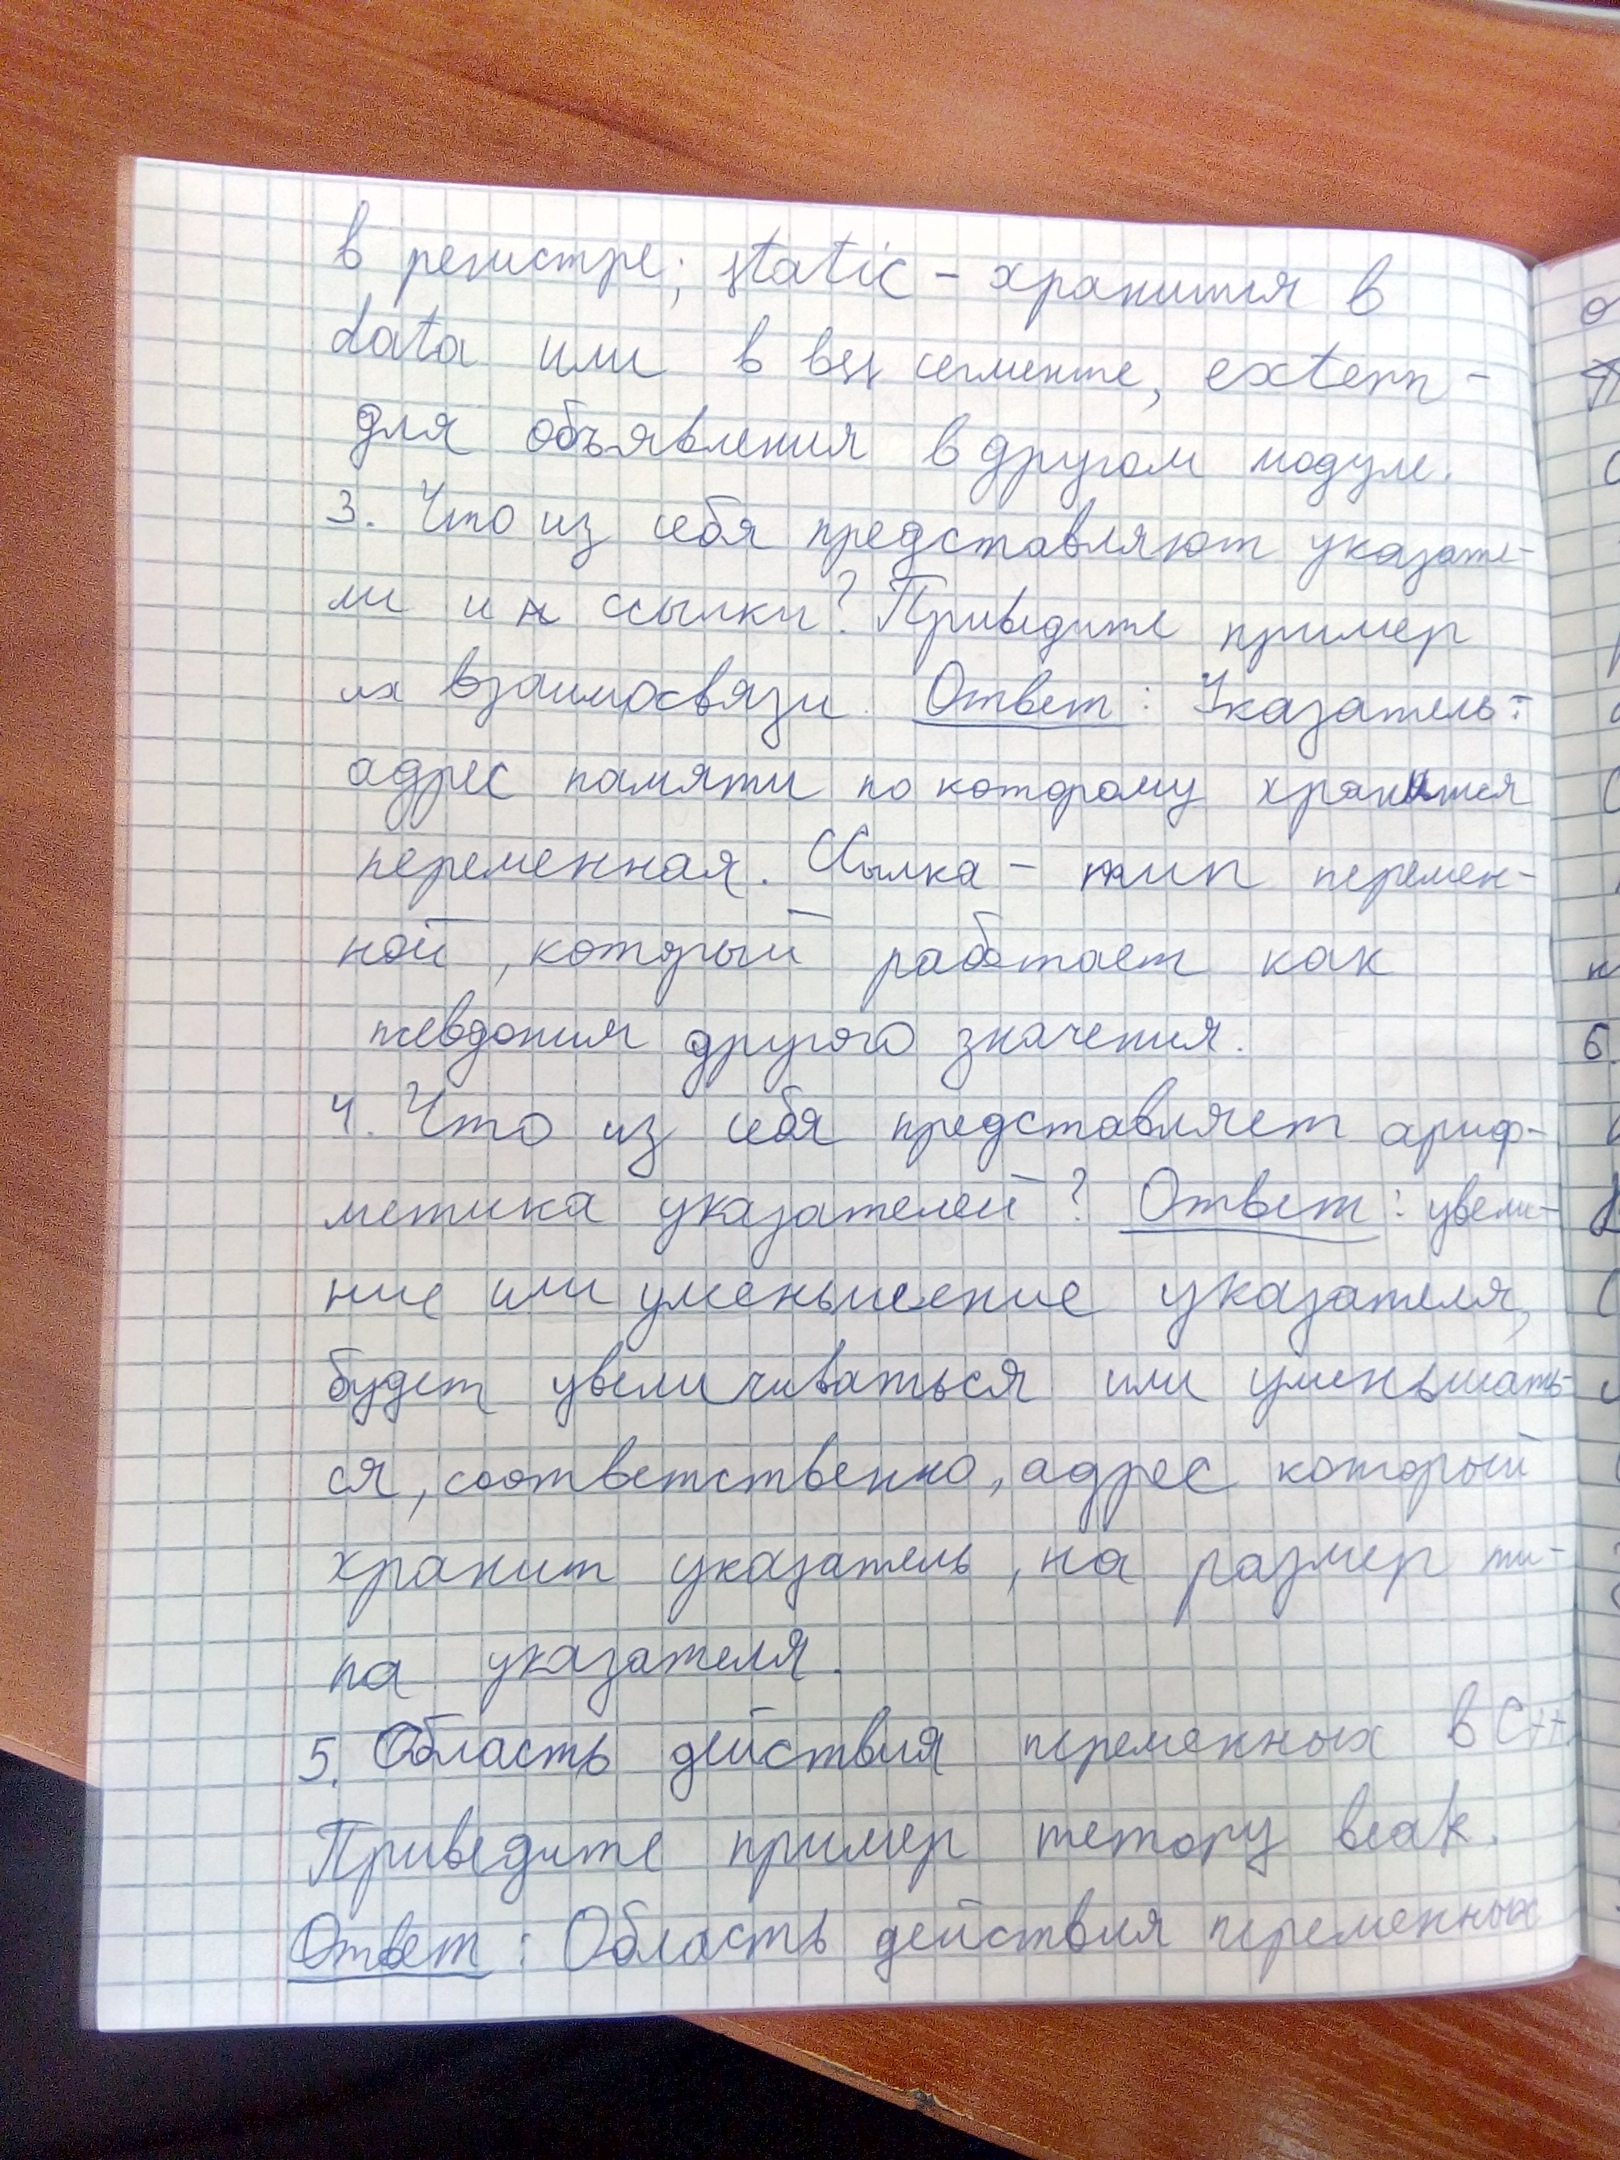 в регистре; static - хранится в
data или в сегменте, extern -
для объявления в другом модуле.
3. Что из себя представляют указате-
ли и ссылки? Приведите пример
их взаимосвязи. Ответ: Указатель -
адрес памяти по которому хранится
переменная. Ссылка - тип перемен-
ной, который работает как
псевдоним другого значения.
4. Что из себя представляет ариф-
метика указателей? Ответ: увели-
ние или уменьшение указателя,
будет увеличиваться или уменьшать-
ся, соответственно, адрес который
хранит указатель, на размер ти-
па указателя.
5. Область действия переменных в C++.
Приведите пример memory leak.
Ответ: Область действия переменных
6.